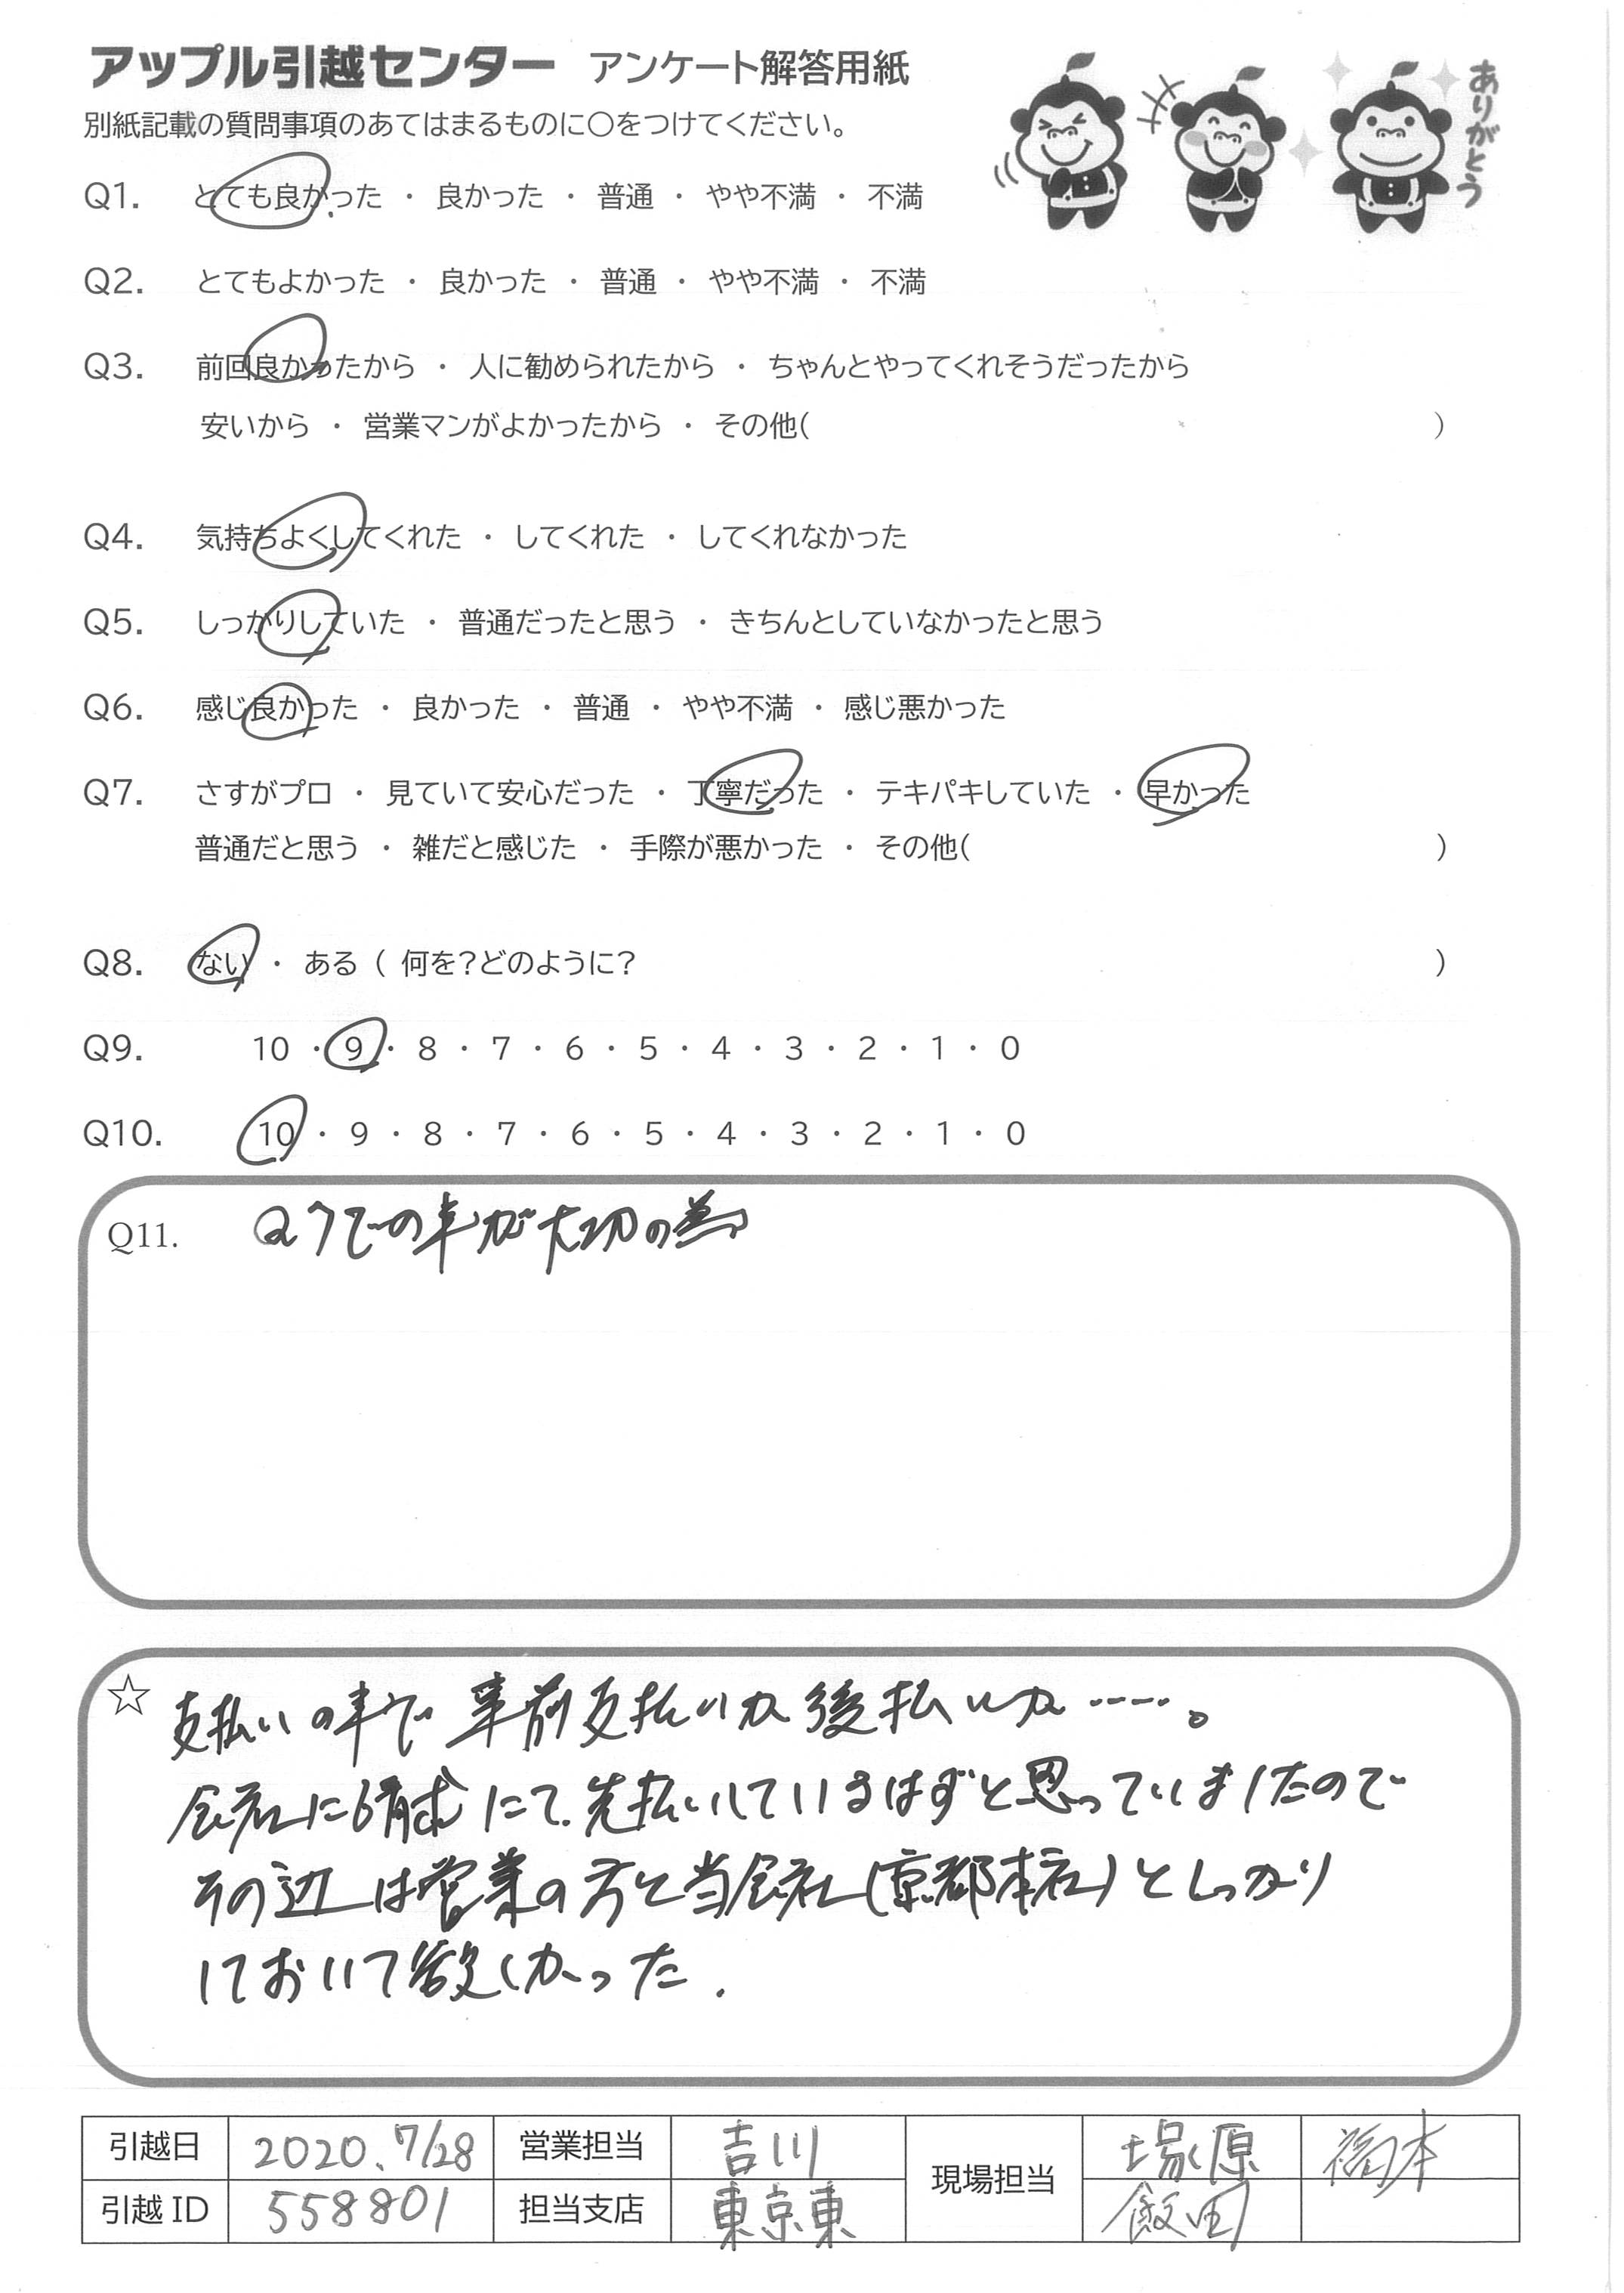 アップル引越センター アンケート解答用紙
ありがとう
別紙記載の質問事項のあてはまるものに○をつけてください。
Q1. とても良かった ・ 良かった ・ 普通 ・ やや不満 ・ 不満
Q2. とてもよかった ・ 良かった ・ 普通 ・ やや不満 ・ 不満
Q3. 前回良かったから ・ 人に勧められたから ・ ちゃんとやってくれそうだったから
安いから ・ 営業マンがよかったから ・ その他( )
Q4. 気持ちよくしてくれた ・ してくれた ・ してくれなかった
Q5. しっかりしていた ・ 普通だったと思う ・ きちんとしていなかったと思う
Q6. 感じ良かった ・ 良かった ・ 普通 ・ やや不満 ・ 感じ悪かった
Q7. さすがプロ ・ 見ていて安心だった ・ 丁寧だった ・ テキパキしていた ・ 早かった
普通だと思う ・ 雑だと感じた ・ 手際が悪かった ・ その他( )
Q8. ない ・ ある ( 何を?どのように? )
Q9. 10 ・ 9 ・ 8 ・ 7 ・ 6 ・ 5 ・ 4 ・ 3 ・ 2 ・ 1 ・ 0
Q10. 10 ・ 9 ・ 8 ・ 7 ・ 6 ・ 5 ・ 4 ・ 3 ・ 2 ・ 1 ・ 0
Q11. Q7での事が大切の為
☆ 支払いの事で 事前支払いか 後払いか……。
会社に請求にて. 先払いしているはずと思っていましたので
その辺は営業の方と当会社(京都本社)としっかり
しておいて欲しかった.
引越日 2020. 7/28 営業担当 吉川 現場担当 塚原 福本
引越 ID 558801 担当支店 東京東 飯田